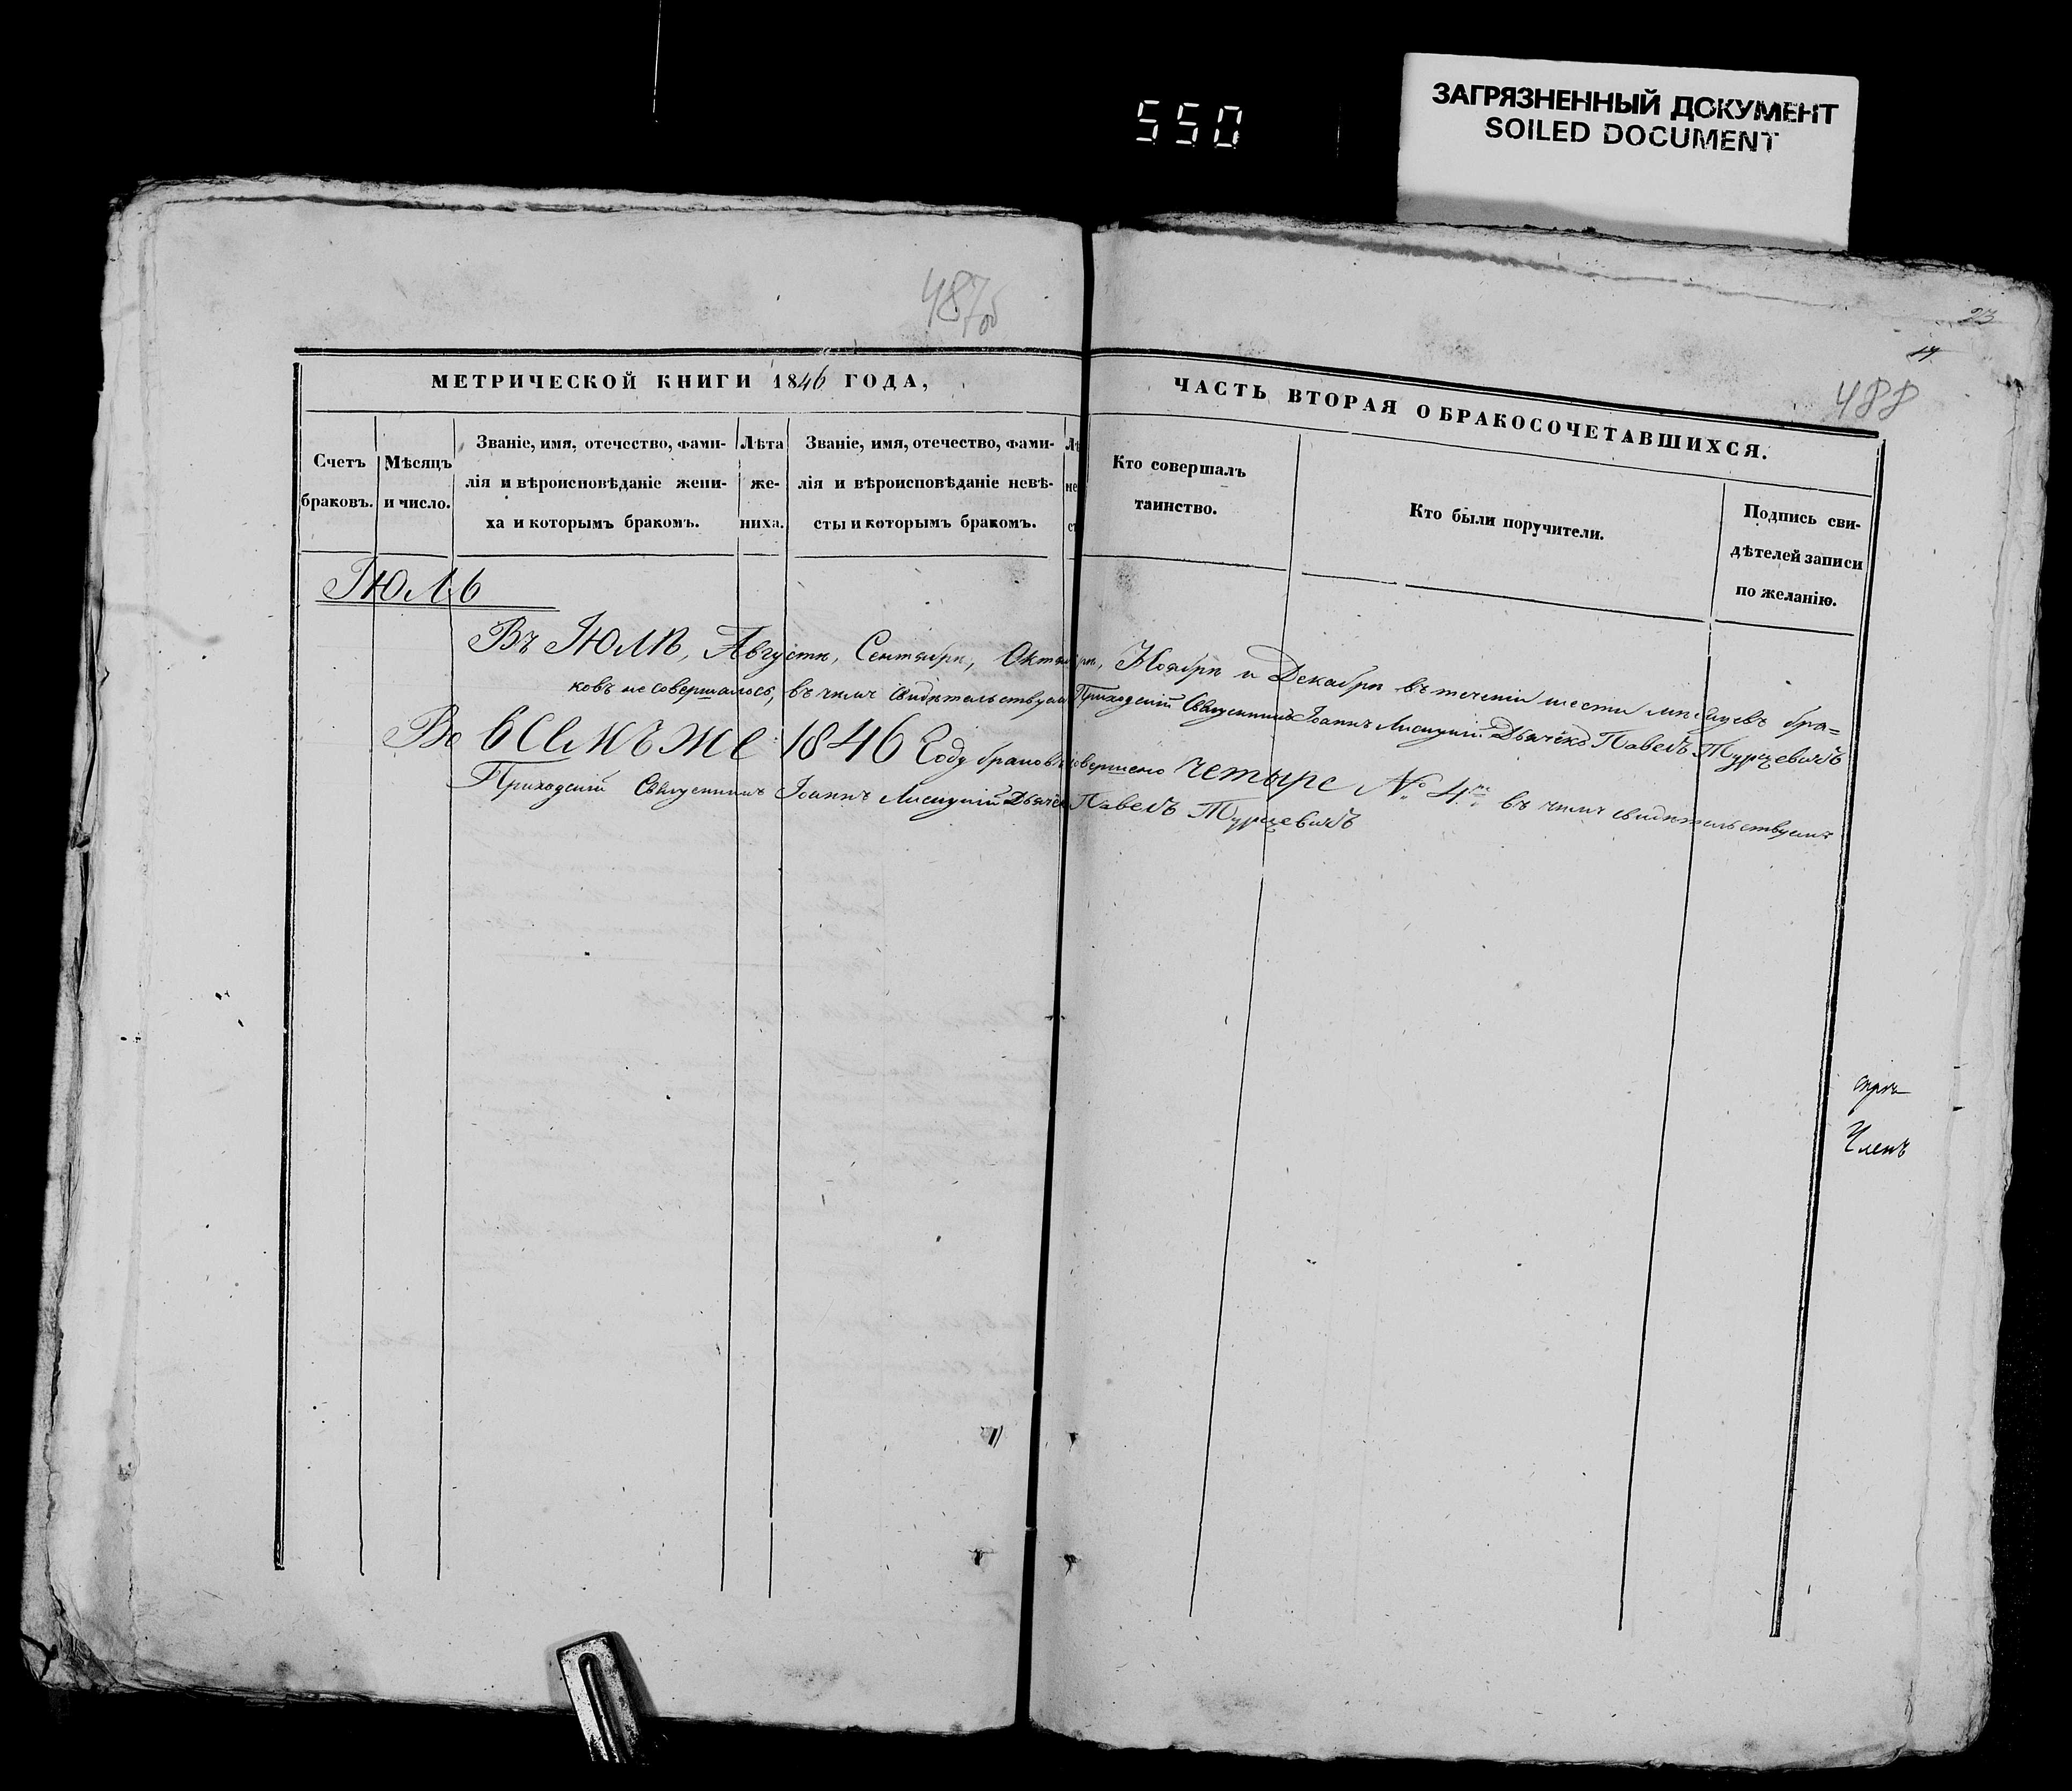 550
ЗАГРЯЗНЕННЫЙ ДОКУМЕНТ
SOILED DOCUMENT
487об
23
17
488
МЕТРИЧЕСКОЙ КНИГИ 1846 ГОДА,
ЧАСТЬ ВТОРАЯ О БРАКОСОЧЕТАВШИХСЯ.
Счетъ
браковъ.
Мѣсяцъ
и число.
Званіе, имя, отечество, фами-
лія и вѣроисповѣданіе жени-
ха и которымъ бракомъ.
Лѣта
же-
ниха.
Званіе, имя, отечество, фами-
лія и вѣроисповѣданіе невѣ-
сты и которымъ бракомъ.
Лѣ
не
ст
Кто совершалъ
таинство.
Кто были поручители.
Подпись сви-
дѣтелей записи
по желанію.
Іюль
Въ Іюлѣ, Августѣ, Сентябрѣ, Октябрѣ, Ноябрѣ и Декабрѣ въ теченіи шести мѣсяцевъ бра=
ковъ не совершалось, въ чемъ свидѣтельствуемъ Приходскій Священникъ Іоаннъ Дьячекъ Павелъ Турцевичъ
Во всемъ же 1846 Году браковъ совершено четыре № 4 въ чемъ свидѣтельствуемъ
Приходскій Священникъ Іоаннъ Дьячекъ Павелъ Турцевичъ
Членъ